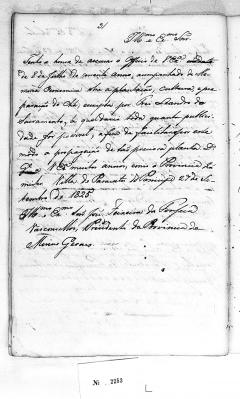 21
Illmo e Exmo Snr.
Tenho a honra de accusar o Officio de V. Exa. datado
de 8 de Julho do corrente anno, acompanhado da Me-
moria Economica sobre a plantação, cultura, e pre-
paração do Chá, composta por Frei Leandro do
Sacramento, a qual darei toda quanta publici-
dade for possivel, a fim de facilitar por este
modo a propagação de tão preciosa planta. D.
Ge. a V. Exa. muitos annos, como a Provincia ha
mister. Villa de Paracatú do Principe 27 de Se-
tembro de 1825.
Illmo e Exmo Snr. José Teixeira da Fonseca
Vasconcellos, Presidente da Provincia de
Minas Geraes.
Ni 2253
L